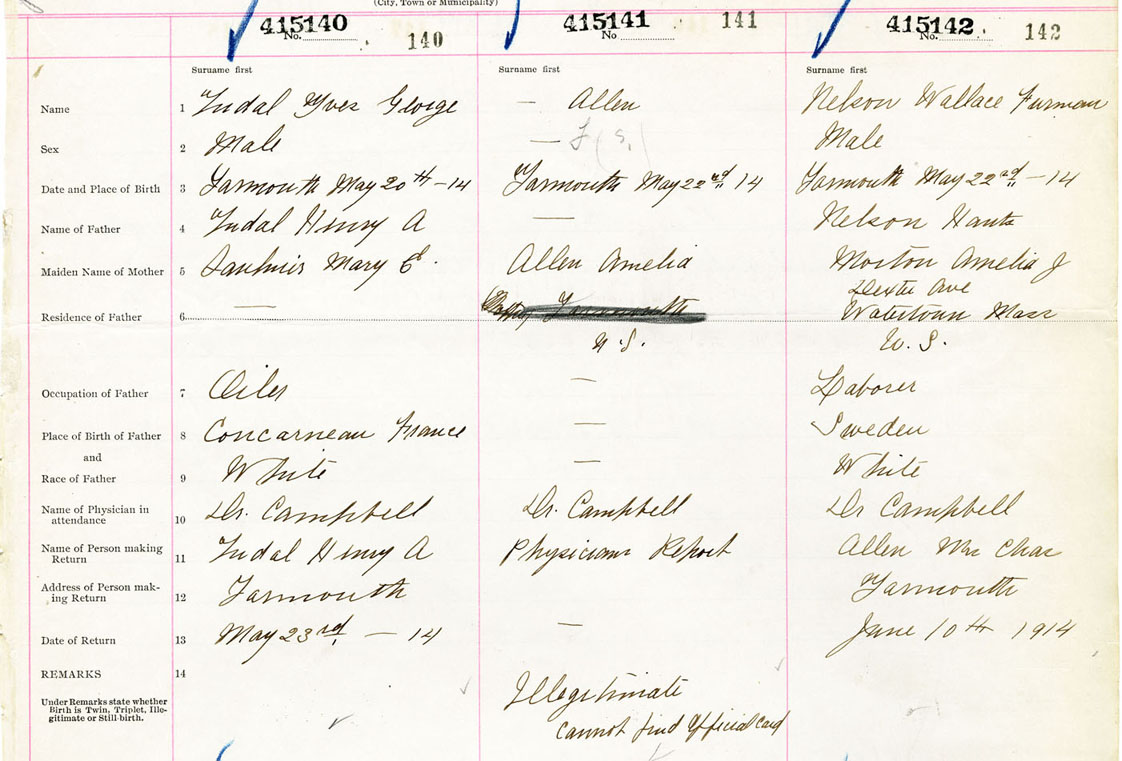 (City, Town or Municipality)
415140 415141 141 415142
No. 140 No. No. 142
Surname first Surname first Surname first
Name 1 Yves George — Allen Nelson Wallace Furman
Sex 2 Male — F Male
Date and Place of Birth 3 Yarmouth May 20th – 14 Yarmouth May 22nd 14 Yarmouth May 22nd – 14
Name of Father 4 Henry A — Nelson
Maiden Name of Mother 5 Mary E Allen Amelia Morton Amelia J
Ave
Residence of Father 6 — Yarmouth Watertown Mass
N.S. U.S.
Occupation of Father 7 Oiler — Laborer
Place of Birth of Father 8 Concarneau France — Sweden
and
Race of Father 9 White — White
Name of Physician in
attendance 10 Dr. Campbell Dr. Campbell Dr Campbell
Name of Person making
Return 11 Henry A Physicians Report Allen Mrs Chas
Address of Person mak-
ing Return 12 Yarmouth Yarmouth
Date of Return 13 May 23rd – 14 — June 10th 1914
REMARKS 14
Under Remarks state whether
Birth is Twin, Triplet, Ille-
gitimate or Still-birth.
Illegitimate
Cannot find Official Card